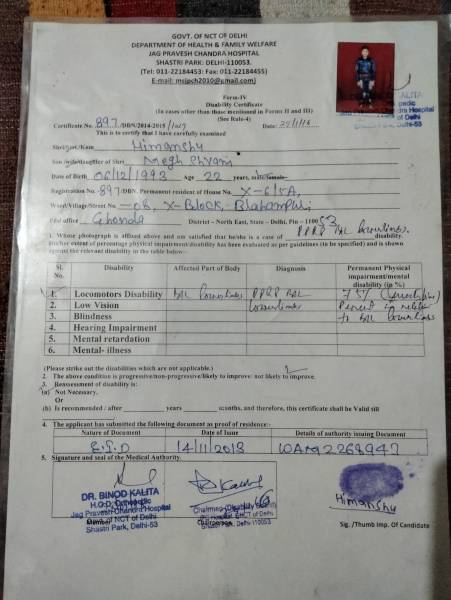 GOVT. OF NCT OF DELHI
DEPARTMENT OF HEALTH & FAMILY WELFARE
JAG PRAVESH CHANDRA HOSPITAL
SHASTRI PARK: DELHI-110053.
(Tel: 011-22184453: Fax: 011-22184455)
E-mail: msjpch2010@gmail.com)
Form-IV
Disability Certificate
(In cases other than those mentioned in Forms II and III)
(See Rule-4)
Certificate No. 897 /DBN/2014-2015/ Date:
This is to certify that I have carefully examined
Shri/Smt./Kum Himanshu
Son/wife/daughter of Shri Megh Shyam
Date of Birth 06/12/1993 Age 22 years, male/female
Registration No. 897 /DBN. Permanent resident of House No. X-6/5A,
Ward/Village/Street No -08, X-Block, Brahampuri
Post office Ghonda District - North East, State - Delhi, Pin - 110053
1. Whose photograph is affixed above and am satisfied that he/she is a case of PPRP disability.
His/her extent of percentage physical impairment/disability has been evaluated as per guidelines (to be specified) and is shown
against the relevant disability in the table below:-
Sl. No. Disability Affected Part of Body Diagnosis Permanent Physical impairment/mental disability (in %)
1. Locomotors Disability PPRP 75%
2. Low Vision
3. Blindness
4. Hearing Impairment
5. Mental retardation
6. Mental- illness
(Please strike out the disabilities which are not applicable.)
2. The above condition is progressive/non-progressive/likely to improve/ not likely to improve.
3. Reassessment of disability is:
(a) Not Necessary.
Or
(b) Is recommended / after years months, and therefore, this certificate shall be Valid till
4. The applicant has submitted the following document as proof of residence:-
Nature of Document Date of Issue Details of authority issuing Document
14/11/2013
5. Signature and seal of the Medical Authority.
DR. BINOD KALITA
H.O.D. Orthopedic
Jag Pravesh Chandra Hospital
Govt. of NCT of Delhi
Shastri Park, Delhi-53
Chairperson
Shastri Park, Delhi-110053
Himanshu
Sig. /Thumb Imp. Of Candidate